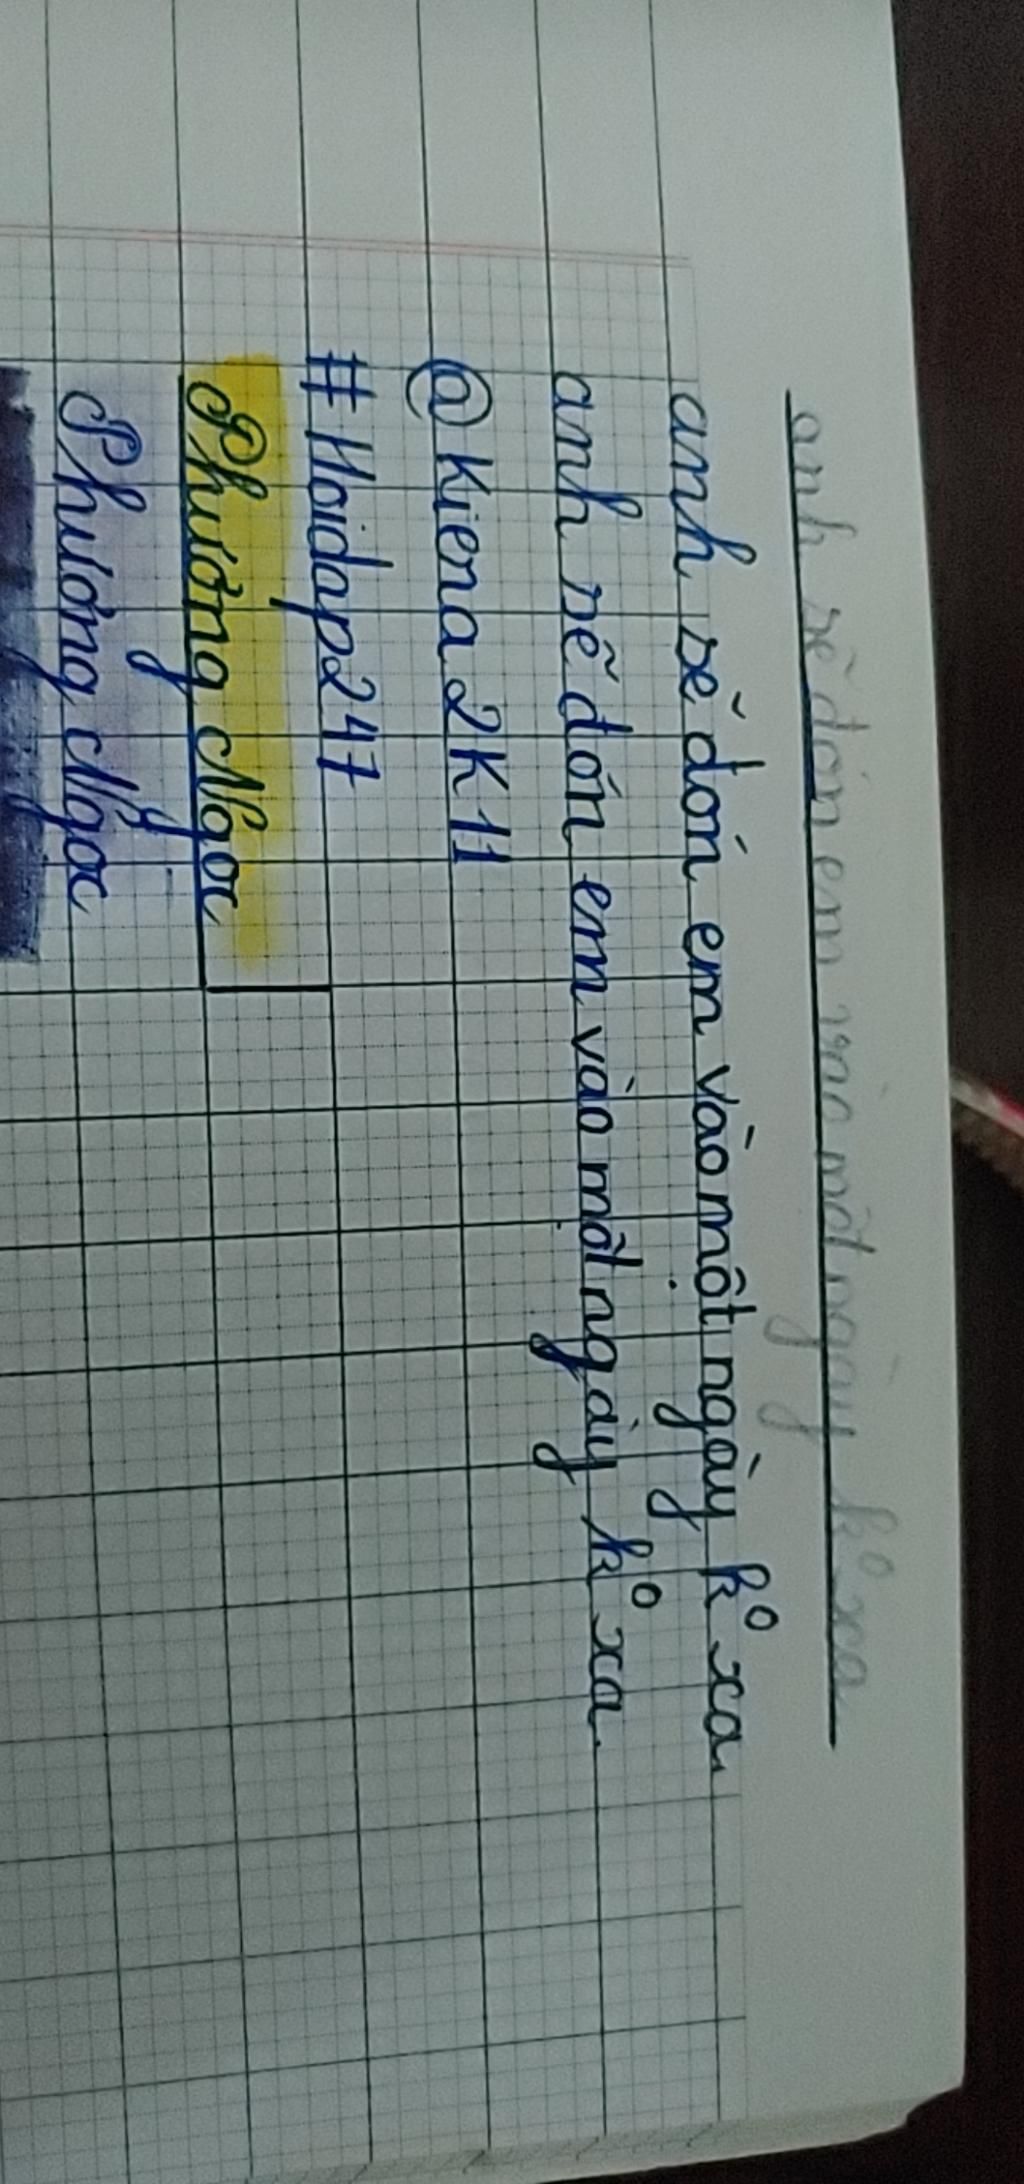 anh sẽ đón em vào một ngày k⁰ xa
anh sẽ đón em vào một ngày k⁰ xa
anh sẽ đón em vào một ngày k⁰ xa
@Kiena2K11
#Hoidap247
Phương Ngọc
Phương Ngọc